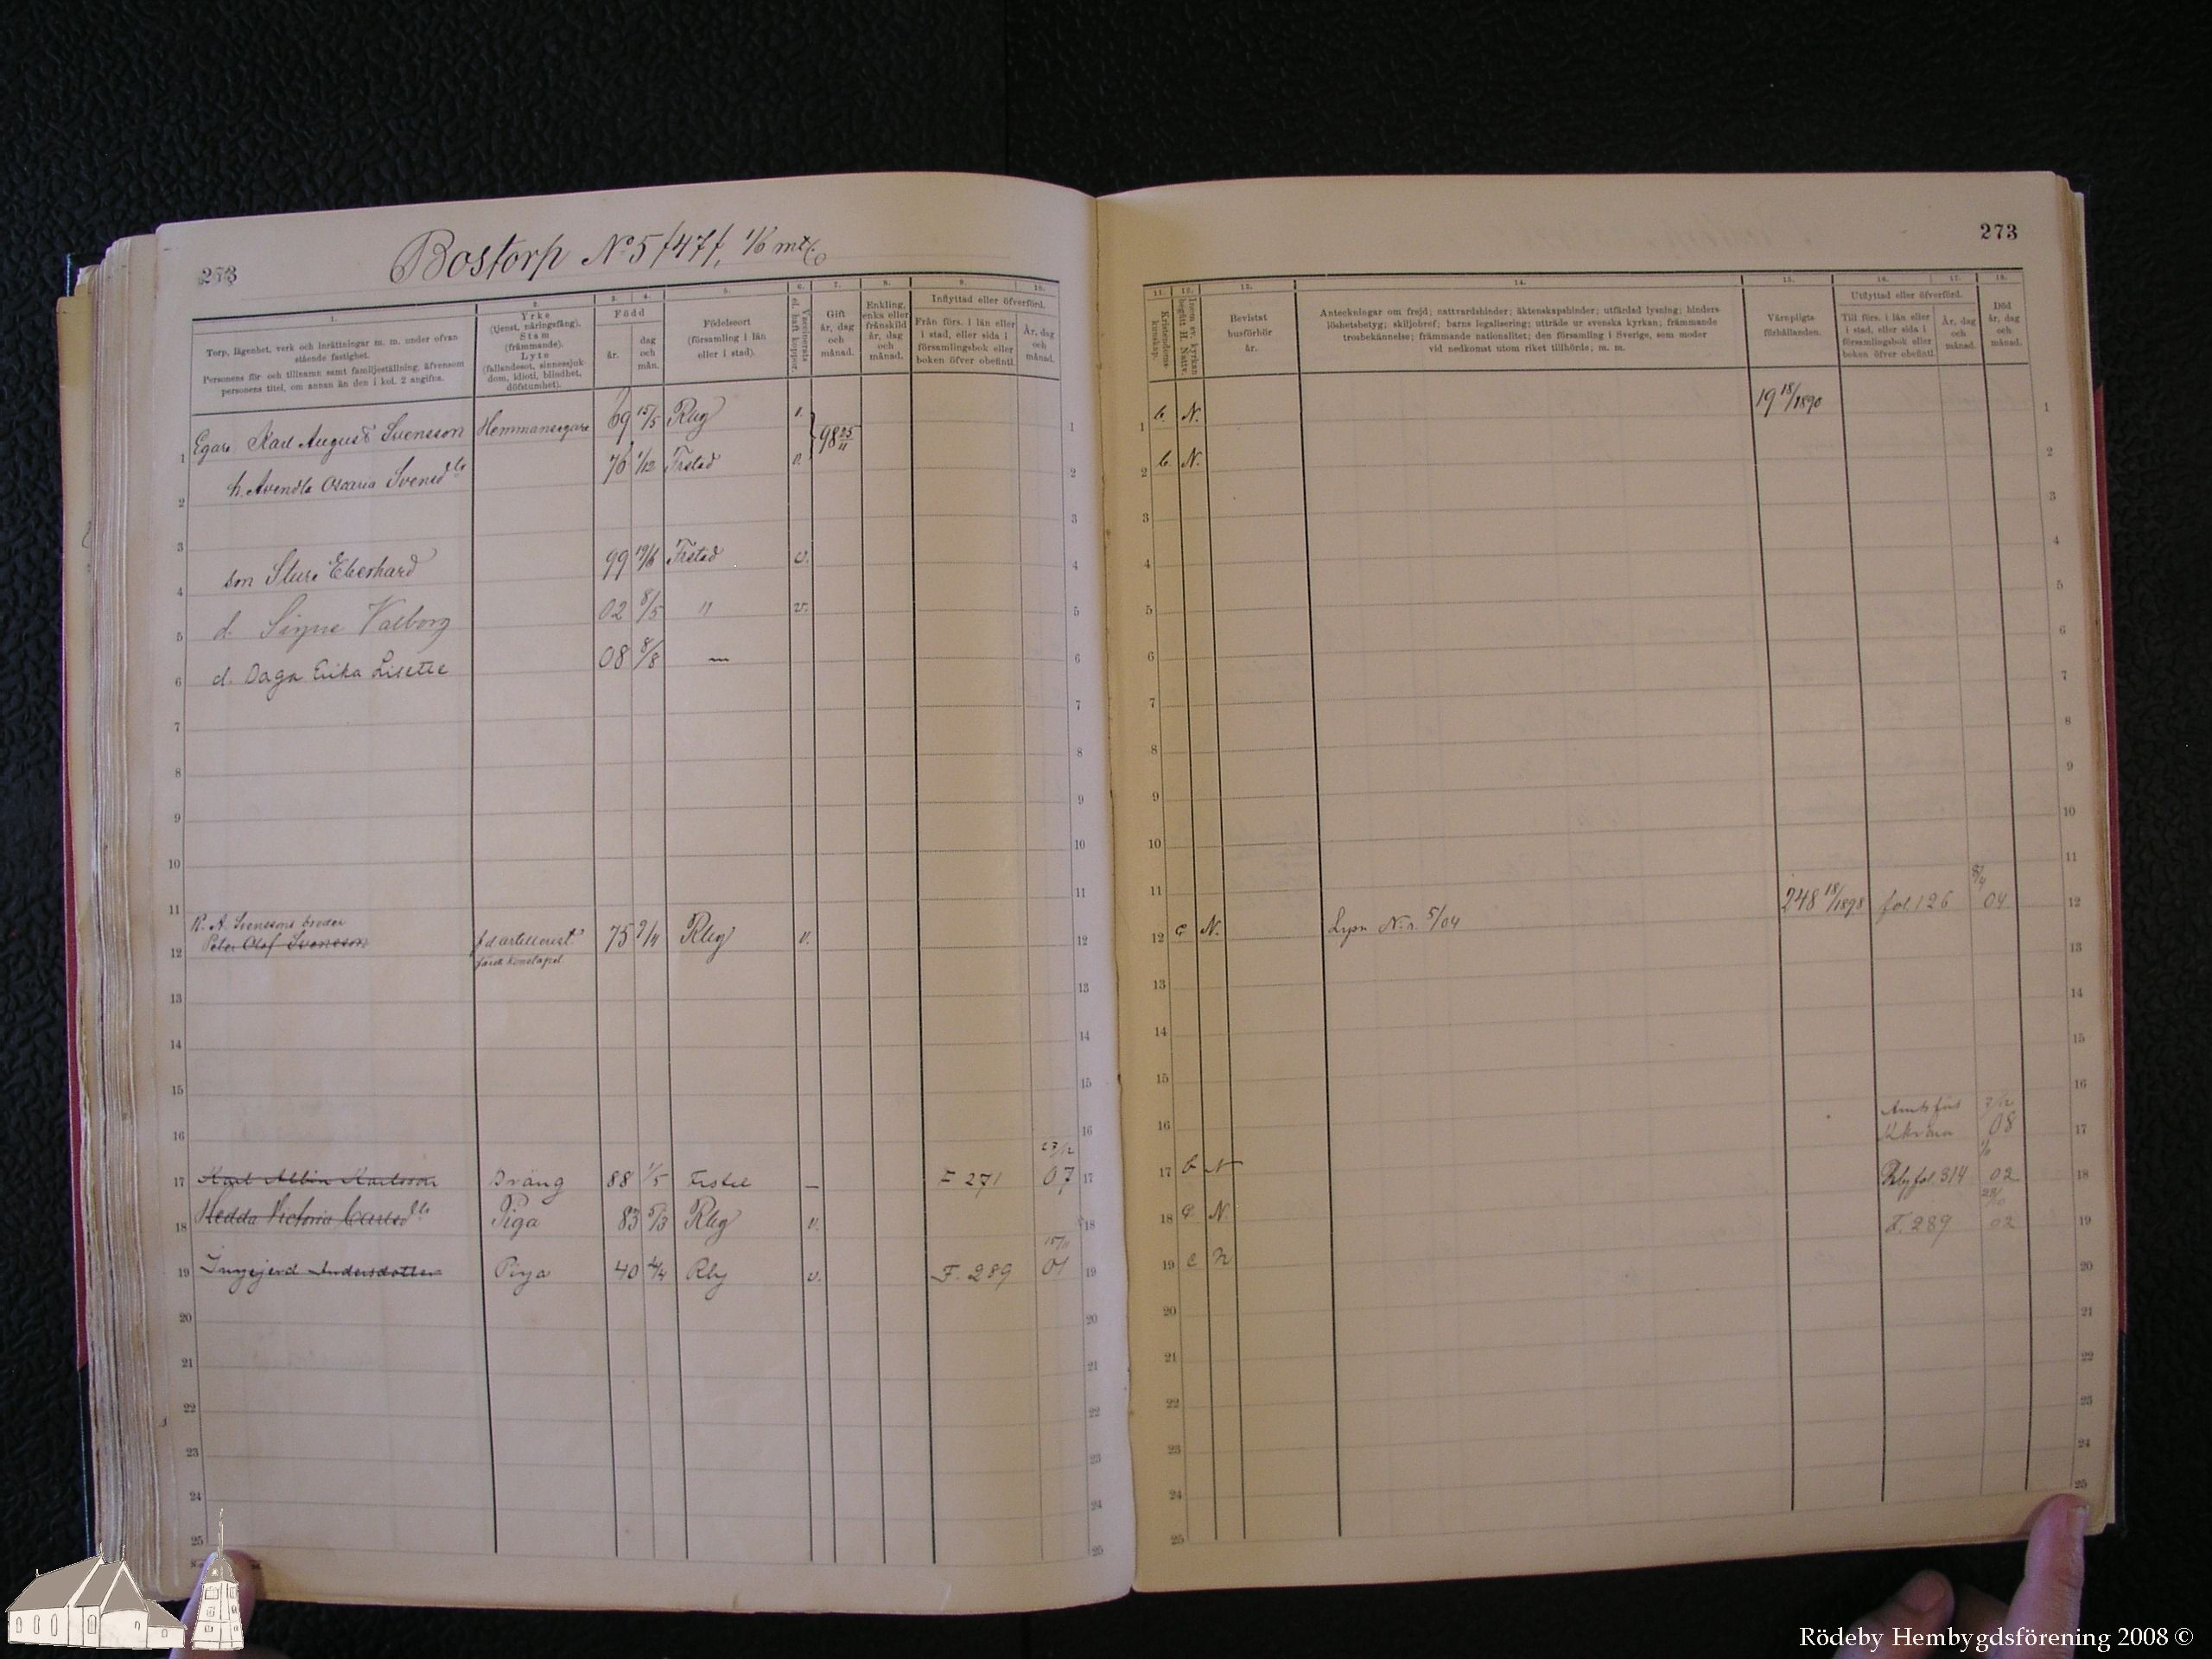 273
Bostorp No 5 /47/, 1/6 mtl.
1. 2. 3. 4. 5. 6. 7. 8. 9. 10.
Torp, lägenhet, verk och inrättningar m. m. under ofvan
stående fastighet.
Personens för- och tillnamn samt familjeställning, äfvensom
personens titel, om annan än den i kol. 2 angifna.
Yrke
(tjenst, näringsfång).
Stam
(främmande).
Lyte
(fallandesot, sinnessjuk-
dom, idioti, blindhet,
döfstumhet).
Född
år.
dag
och
mån.
Födelseort
(församling i län
eller i stad).
Vaccinerats
el. haft koppor.
Gift
år, dag
och
månad.
Enkling,
enka eller
frånskild
år, dag
och
månad.
Inflyttad eller öfverförd.
Från förs. i län eller
i stad, eller sida i
församlingsbok eller
boken öfver obefintl.
År, dag
och
månad.
1 Egare Karl August Svensson Hemmansegare 69 15/5 Rby v. 98 25/11 1
2 h. Avendla Oscaria Svensdtr 76 1/12 Frstad v. 2
3 3
4 son Sture Eberhard 99 19/6 Frstad v. 4
5 d. Signe Valborg 02 8/5 " v. 5
6 d. Daga Erika Lisette 08 8/8 — 6
7 7
8 8
9 9
10 10
11 11
K. A. Svenssons broder
12 Peter Olof Svensson f d artillerist 75 Rby v. 12
13 13
14 14
15 15
16 16
17 Karl Albin Karlsson Dräng 88 1/5 — F 271 07 17
18 Hedda Victoria Carlsdtr Piga 83 5/3 Rby v. 18
19 Ingejerd Andersdotter Piga 40 Rby v. F. 289 15/11 01 19
20 20
21 21
22 22
23 23
24 24
25 25
273
11. 12. 13. 14. 15. 16. 17. 18.
Kristendoms-
kunskap.
Inom sv. kyrkan
begått H. Nattv.
Bevistat
husförhör
år.
Anteckningar om frejd; nattvardshinder; äktenskapshinder; utfärdad lysning; hinders-
löshetsbetyg; skiljobref; barns legalisering; utträde ur svenska kyrkan; främmande
trosbekännelse; främmande nationalitet; den församling i Sverige, som moder
vid nedkomst utom riket tillhörde; m. m.
Värnpligts-
förhållanden.
Utflyttad eller öfverförd.
Till förs. i län eller
i stad, eller sida i
församlingsbok eller
boken öfver obefintl.
År, dag
och
månad.
Död
år, dag
och
månad.
1 b. N. 19 18/1890 1
2 b. N. 2
3 3
4 4
5 5
6 6
7 7
8 8
9 9
10 10
11 11
12 c N. Lysn N:r 5/04 248 18/1898 fol 126 04 12
13 13
14 14
15 15
16 16
17 b N 08 17
18 c N. Rby fol. 314 02 18
19 c N F. 289 02 19
20 20
21 21
22 22
23 23
24 24
25 25
Rödeby Hembygdsförening 2008 ©